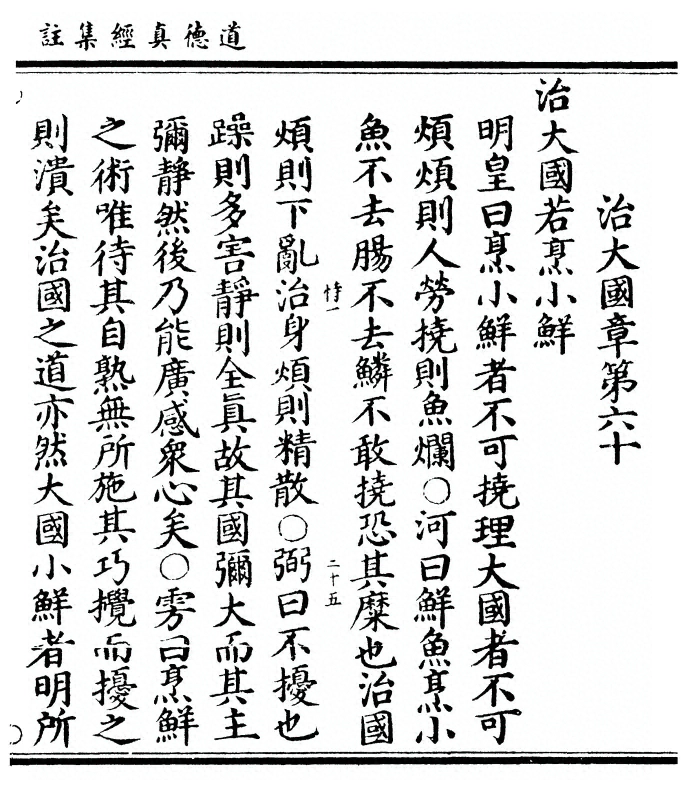 道德真經集註
治大國章第六十
治大國若烹小鮮
明皇曰烹小鮮者不可撓理大國者不可
煩煩則人勞撓則魚爛○河曰鮮魚烹小
魚不去腸不去鱗不敢撓恐其糜也治國
恃一
二十五
煩則下亂治身煩則精散○弼曰不擾也
躁則多害靜則全眞故其國彌大而其主
彌靜然後乃能廣感衆心矣○雱曰烹鮮
之術唯待其自熟無所施其巧攪而擾之
則潰矣治國之道亦然大國小鮮者明所